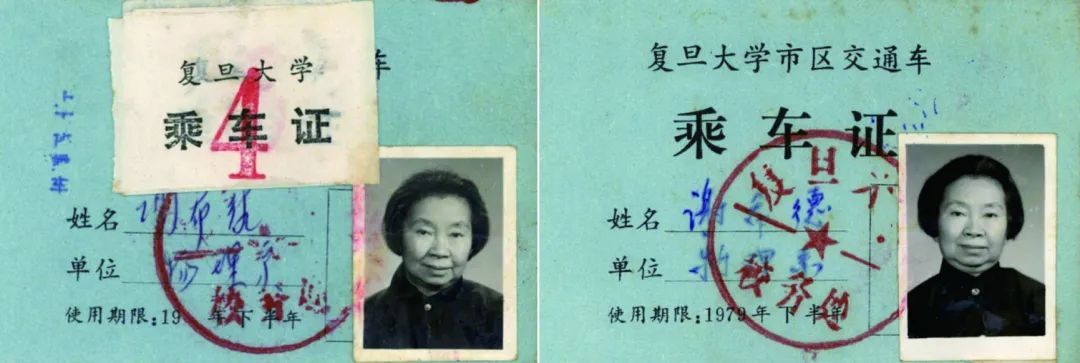 复旦大学
4
乘车证
车
姓名 谢希德
单位 物理系
使用期限:19 年下半年
复旦大学市区交通车
乘车证
姓名 谢希德
单位 物理系
使用期限:1979年下半年